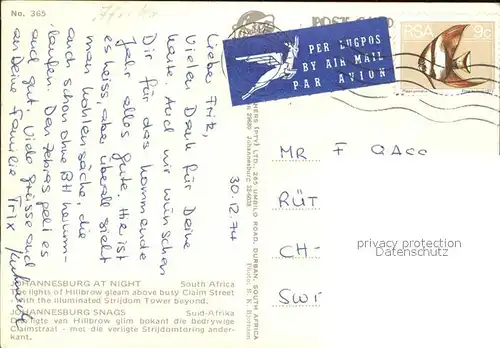 No. 365
POST CARD
PER LUGPOS
BY AIR MAIL
PAR AVION
RSA 9c
30.12.74
Liebe Fritz,
Vielen Dank für Deine
Karte. Auch wir wünschen
Dir für das kommende
Jahr alles gute. Hier ist
es heiss, aber überall sieht
man
auch schon ohne BH herum-
laufen. Den Zebras geht es
auch gut. Viele grüsse auch
an Deine Familie Trix
MR F
RÜT
CH-
SWI
privacy protection
oldthing.de
JOHANNESBURG AT NIGHT South Africa
The lights of Hillbrow gleam above busy Claim Street
with the illuminated Strijdom Tower beyond.
JOHANNESBURG SNAGS Suid-Afrika
Die ligte van Hillbrow glim bokant die bedrywige
Claimstraat - met die verligte Strijdomtoring ander-
kant.
(PTY) LTD., 265 UMBILO ROAD, DURBAN, SOUTH AFRICA